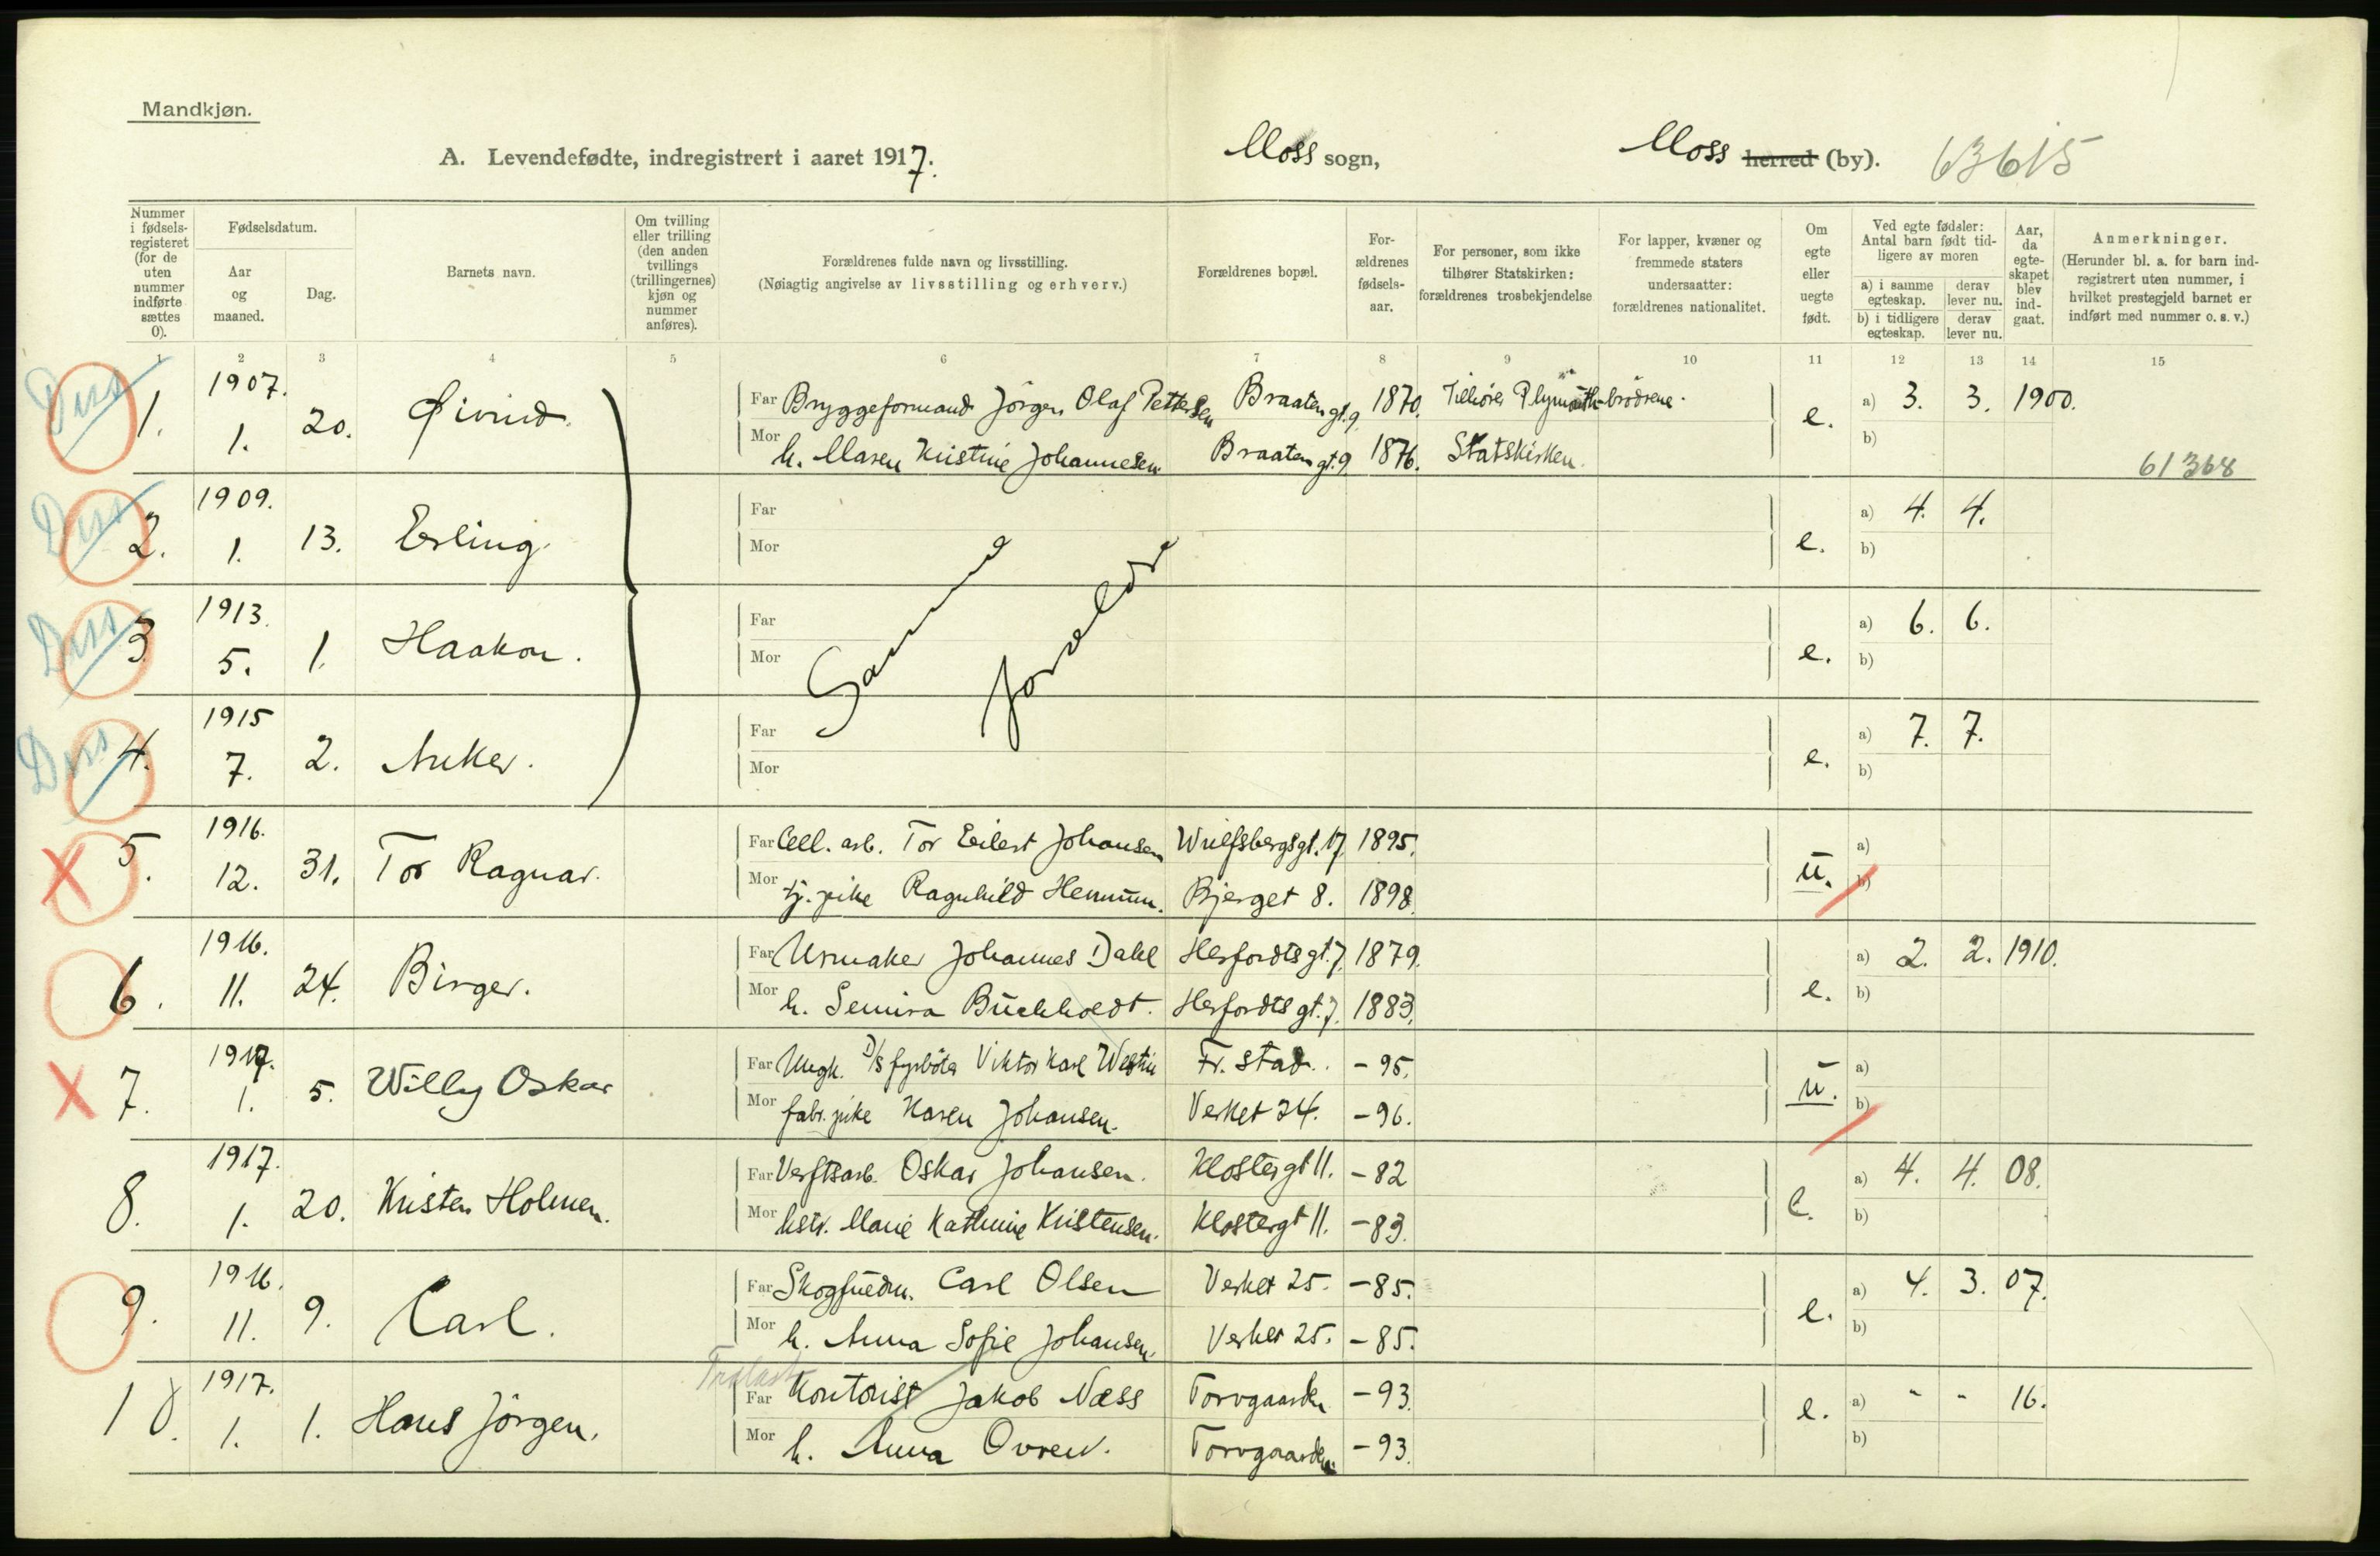 Mandkjøn.
A. Levendefødte, indregistrert i aaret 1917. Moss sogn, Moss herred (by). 63615
Nummer i fødsels-registeret (for de uten nummer indførte sættes 0).
Fødselsdatum.
Aar og maaned.
Dag.
Barnets navn.
Om tvilling eller trilling (den anden tvillings (trillingernes) kjøn og nummer anføres).
Forældrenes fulde navn og livsstilling.
(Nøiagtig angivelse av livsstilling og erhverv.)
Forældrenes bopæl.
For-ældrenes fødsels-aar.
For personer, som ikke tilhører Statskirken: forældrenes trosbekjendelse
For lapper, kvæner og fremmede staters undersaatter: forældrenes nationalitet.
Om egte eller uegte født.
Ved egte fødsler: Antal barn født tid-ligere av moren
a) i samme egteskap. derav lever nu.
b) i tidligere egteskap. derav lever nu.
Aar, da egte-skapet blev ind-gaat.
Anmerkninger.
(Herunder bl. a. for barn ind-registrert uten nummer, i hvilket prestegjeld barnet er indført med nummer o. s. v.)
1 2 3 4 5 6 7 8 9 10 11 12 13 14 15
Diss 1. 1907. 1. 20. Øivind. Far Bryggeformand Jörgen Olaf Pettersen Braatengt. 9 1870. Tilhörer Plymouth-brödrene. e. a) 3. 3. 1900.
Mor h. Maren Kristine Johannesen Braatengt. 9 1876. Statskirken. b)
61368
Diss 2. 1909. 1. 13. Erling. Far e. a) 4. 4.
Mor b)
Diss 3 1913. 5. 1. Haakon. Far e. a) 6. 6.
Mor b)
Samme foreldre
Diss 4. 1915 7. 2. Anker. Far e. a) 7. 7.
Mor b)
X 5. 1916. 12. 31. Tor Ragnar. Far Cell. arb. Tor Eilert Johansen Wulfsbergsgt. 17. 1895. u. a)
Mor tj. pike Ragnhild Hennum. Bjerget 8. 1898. b)
6. 1916. 11. 24. Birger. Far Urmaker Johannes Dahl Herfordts gt. 7. 1879. e. a) 2. 2. 1910.
Mor h. Semira Buckholdt. Herfordts gt. 7. 1883. b)
X 7. 1917. 1. 5. Willy Oskar Far Ungk. D/s fyrböter Viktor Karl Westin Fr. stad. -95. u. a)
Mor fabr. pike Karen Johansen. Verket 24. -96. b)
8. 1917. 1. 20. Kristen Holmen. Far Verftsarb. Oskar Johansen. Klostergt 11. -82 e. a) 4. 4. 08.
Mor hstr. Marie Kathrine Kristensen. Klostergt 11. -83. b)
9. 1916. 11. 9. Carl. Far Skogfuldm. Carl Olsen Verket 25. -85. e. a) 4. 3. 07.
Mor h. Anna Sofie Johansen. Verket 25. -85. b)
Trælast
10. 1917. 1. 1. Hans Jörgen. Far Kontorist Jakob Næss Torvgaarden -93. e. a) - - 16.
Mor h. Anna Ovren. Torvgaarden. -93. b)